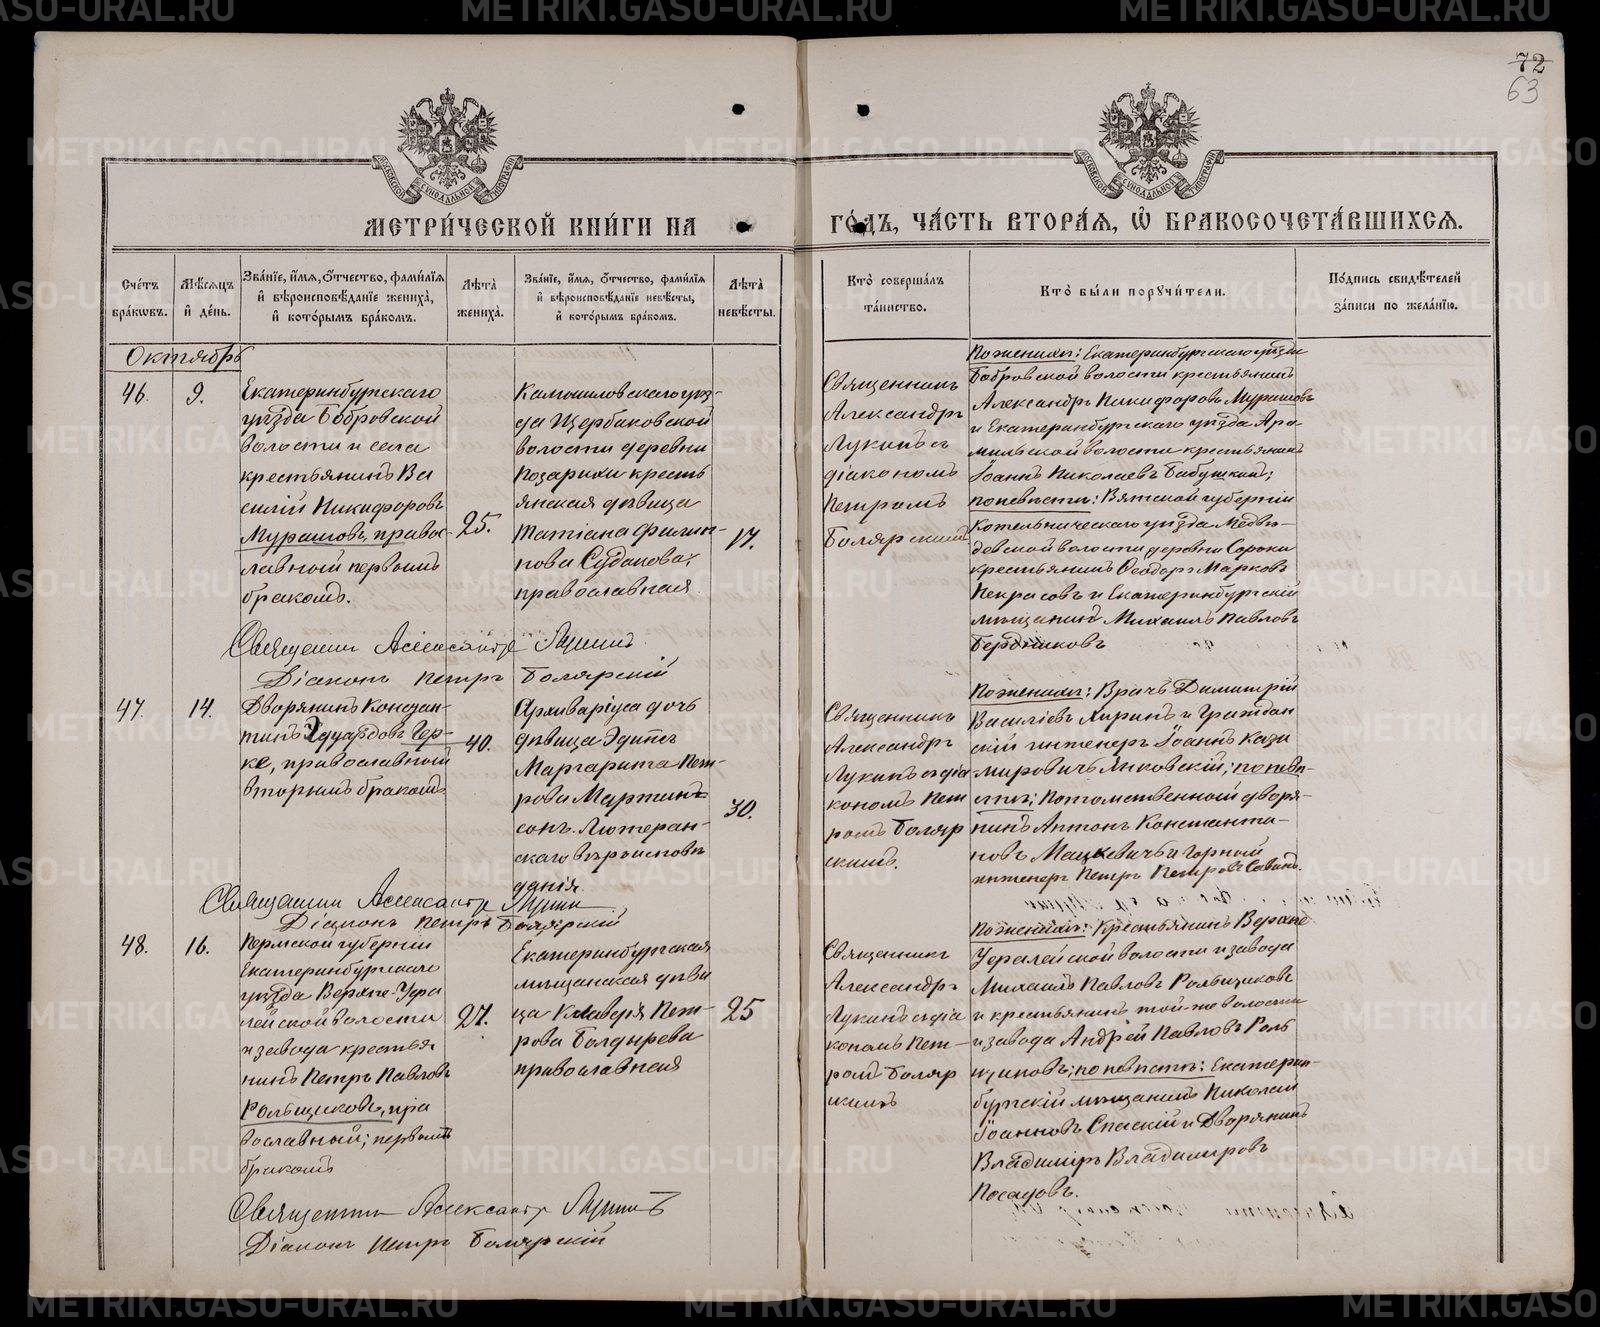 72
63
МОСКОВСКОЙ СѴНОДАЛЬНОЙ ТИПОГРАФІИ
МОСКОВСКОЙ СѴНОДАЛЬНОЙ ТИПОГРАФІИ
МЕТРИ́ЧЕСКОЙ КНИ́ГИ НА
ГО́ДЪ, ЧА́СТЬ ВТОРА́Я, Ѡ҆ БРАКОСОЧЕТА́ВШИХСЯ.
Сче́тъ
бра́кѡвъ.
Мѣ́сяцъ
и҆ де́нь.
Зва́нїе, и҆́мя, ѻ҆́тчество, фами́лїя
и҆ вѣроисповѣ́данїе жениха̀,
и҆ кото́рымъ бра́комъ.
Лѣ́та
жениха̀.
Зва́нїе, и҆́мя, ѻ҆́тчество, фами́лїя
и҆ вѣроисповѣ́данїе невѣ́сты,
и҆ кото́рымъ бра́комъ.
Лѣ́та
невѣ́сты.
Кто̀ соверша́лъ
та́инство.
Кто̀ бы́ли порꙋчи́тели.
По́дпись свидѣ́телей
за́писи по жела́нїю.
Октябрь
46.
9.
Екатеринбургскаго
уѣзда Бобровской
волости и села
крестьянинъ Ва
силій Никифоровъ
Мурашовъ, правос-
лавный первымъ
бракомъ.
25.
Камышловскаго уѣз-
да Щербаковской
волости деревни
Позарихи кресть
янская дѣвица
Татіана Филип-
пова Судакова,
православная.
17.
Священникъ
Александръ
Лукинъ съ
діакономъ
Петромъ
Болярскимъ
По женихѣ: Екатеринбургскаго уѣзда
Бобровской волости крестьянинъ
Александръ Никифоровъ Мурашовъ
и Екатеринбургскаго уѣзда Ара-
мильской волости крестьянинъ
Іоаннъ Николаевъ Бабушкинъ;
по невѣстѣ: Вятской губерніи
Котельническаго уѣзда Медвѣ-
девской волости деревни Сороки
крестьянинъ Ѳеодоръ Марковъ
Некрасовъ и Екатеринбургскій
мѣщанинъ Михаилъ Павловъ
Бердниковъ
Священник Александр Лукинъ
Діаконъ Петръ Болярскій
47.
14.
Дворянинъ Констан-
тинъ Эдуардовъ Гер-
ке, православный
вторымъ бракомъ
40.
Архиваріуса дочь
дѣвица Эдитъ
Маргарита Пет-
рова Мартин-
сонъ. Лютеран-
скаго вѣроисповѣ
данія.
30.
Священникъ
Александръ
Лукинъ съ діа
кономъ Пет
ромъ Боляр
скимъ.
По женихѣ: Врачъ Димитрій
Василіевъ Лиринъ и Граждан
скій инженеръ Іоаннъ Кази
мировичъ Янковскій; по невѣ-
стѣ: Потомственный дворя-
нинъ Антонъ Константи-
новъ Мацкевичъ и Горный
инженеръ Петръ Петровъ Савинъ.
Священник Александр Лукин
Діаконъ Петръ Болярскій
48.
16.
Пермской губерніи
Екатеринбургскаго
уѣзда Верхне-Уфа
лейской волости
и завода крестья
нинъ Петръ Павловъ
Рольщиковъ, пра
вославный; первымъ
бракомъ
27.
Екатеринбургская
мѣщанская дѣви
ца Клавдія Пет-
рова Болдырева
православная
25
Священникъ
Александръ
Лукинъ съ діа
кономъ Пет-
ромъ Боляр
скимъ
По женихѣ: Крестьянинъ Верхне
Уфалейской волости и завода
Михаилъ Павловъ Рольщиковъ
и крестьянинъ той-же волости
и завода Андрей Павловъ Роль
щиковъ; по невѣстѣ: Екатерин-
бургскій мѣщанинъ Николай
Іоанновъ Спаскій и Дворянинъ
Владиміръ Владиміровъ
Посадовъ.
Священник Александр Лукинъ
Діаконъ Петръ Болярскій
METRIKI.GASO-URAL.RU